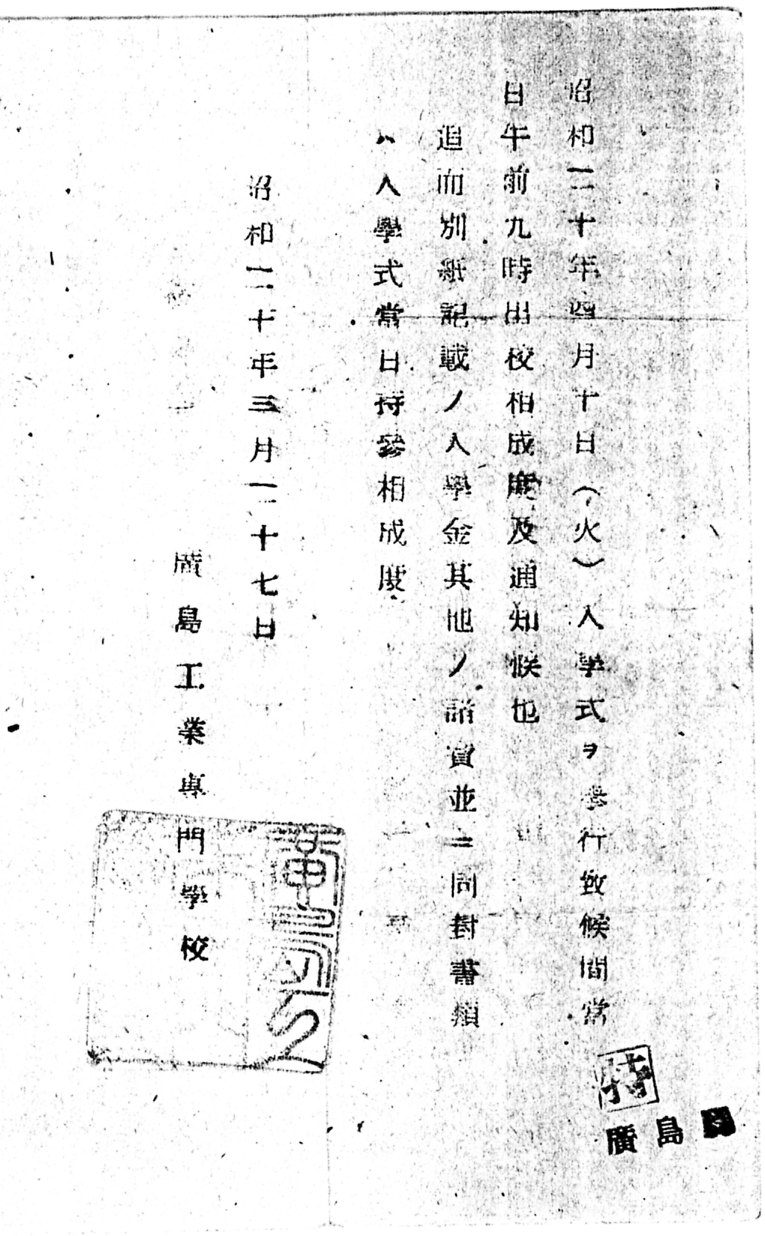 昭和二十年四月十日(火)入學式ヲ擧行致候間當
日午前九時出校相成度及通知候也
追而別紙記載ノ入學金其他ノ諸費並ニ同封書類
ハ入學式當日持參相成度
昭和二十年三月二十七日
廣島工業專門學校
特
廣島